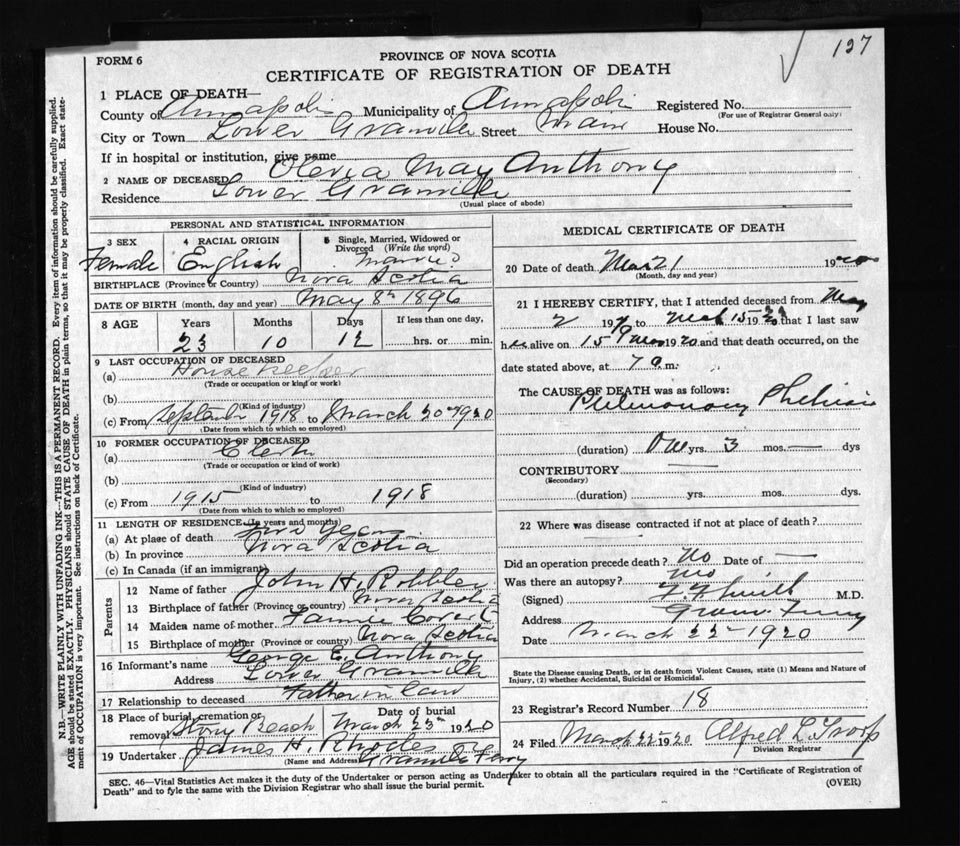 127
FORM 6
PROVINCE OF NOVA SCOTIA
CERTIFICATE OF REGISTRATION OF DEATH
1 PLACE OF DEATH—
County of Annapolis Municipality of Annapolis Registered No.
(For use of Registrar General only)
City or Town Lower Granville Street Main House No.
If in hospital or institution, give name
2 NAME OF DECEASED Olevia May Anthony
Residence Lower Granville
(Usual place of abode)
PERSONAL AND STATISTICAL INFORMATION
3 SEX 4 RACIAL ORIGIN 5 Single, Married, Widowed or Divorced (Write the word)
Female English Married
BIRTHPLACE (Province or Country) Nova Scotia
DATE OF BIRTH (month, day and year) May 8th 1896
8 AGE Years Months Days If less than one day,
23 10 12 hrs. or min.
9 LAST OCCUPATION OF DECEASED
(a) Housekeeper
(Trade or occupation or kind of work)
(b)
(Kind of industry)
(c) From September 1918 to March 20 1920
(Date from which to which so employed)
10 FORMER OCCUPATION OF DECEASED
(a) Clerk
(Trade or occupation or kind of work)
(b)
(Kind of industry)
(c) From 1915 to 1918
(Date from which to which so employed)
11 LENGTH OF RESIDENCE (In years and months)
(a) At place of death years
(b) In province Nova Scotia
(c) In Canada (if an immigrant)
Parents
12 Name of father John H. Robblee
13 Birthplace of father (Province or country) Nova Scotia
14 Maiden name of mother Fannie Covert
15 Birthplace of mother (Province or country) Nova Scotia
16 Informant's name George E. Anthony
Address Lower Granville
17 Relationship to deceased Father in law
18 Place of burial, cremation or removal Stony Beach Date of burial March 23rd 1920
19 Undertaker James H. Rhodes
(Name and Address) Granville Ferry
MEDICAL CERTIFICATE OF DEATH
20 Date of death Mar 21 1920
(Month, day and year)
21 I HEREBY CERTIFY, that I attended deceased from May
2 1919 to Mch 15 1920 that I last saw
her alive on 15 Mar 1920 and that death occurred, on the
date stated above, at 7 a m.
The CAUSE OF DEATH was as follows:
Pulmonary Phthisis
(duration) One yrs. 3 mos. — dys
CONTRIBUTORY —
(Secondary)
(duration) yrs. mos. dys.
22 Where was disease contracted if not at place of death?
Did an operation precede death? No Date of —
Was there an autopsy? No
(Signed) M.D.
Address Granv. Ferry
Date March 22nd 1920
State the Disease causing Death, or in death from Violent Causes, state (1) Means and Nature of
Injury, (2) whether Accidental, Suicidal or Homicidal.
23 Registrar's Record Number 18
24 Filed March 22nd 1920 Alfred L. Troop
Division Registrar
SEC. 46—Vital Statistics Act makes it the duty of the Undertaker or person acting as Undertaker to obtain all the particulars required in the "Certificate of Registration of
Death" and to fyle the same with the Division Registrar who shall issue the burial permit.
(OVER)
N.B.—WRITE PLAINLY WITH UNFADING INK—THIS IS A PERMANENT RECORD. Every item of information should be carefully supplied.
AGE should be stated EXACTLY. PHYSICIANS should STATE CAUSE OF DEATH in plain terms, so that it may be properly classified. Exact state-
ment of OCCUPATION is very important. See instructions on back of Certificate.